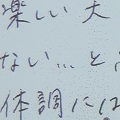 楽しい大
ない…と
体調には